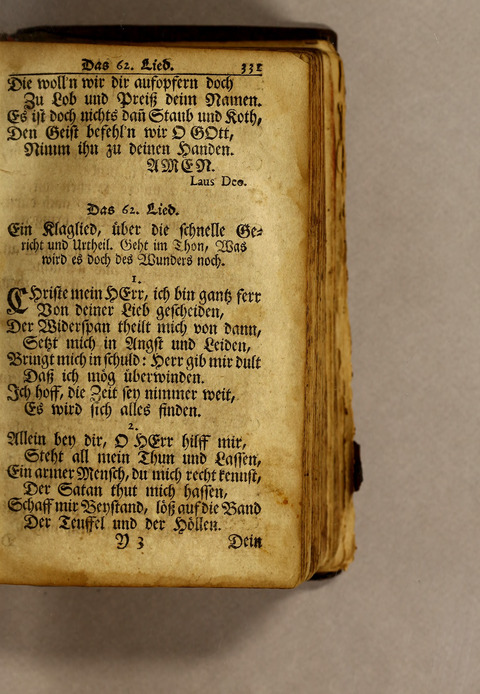 Das 62. Lied. 331
Die woll'n wir dir aufopfern doch
Zu Lob und Preiß deim Namen.
Es ist doch nichts dañ Staub und Koth,
Den Geist befehl'n wir O GOtt,
Nimm ihn zu deinen Handen.
AMEN.
Laus Deo.
Das 62. Lied.
Ein Klaglied, über die schnelle Ge-
richt und Urtheil. Geht im Thon, Was
wird es doch des Wunders noch.
1.
CHriste mein HErr, ich bin gantz ferr
Von deiner Lieb gescheiden,
Der Widerspan theilt mich von dann,
Setzt mich in Angst und Leiden,
Bringt mich in schuld: Herr gib mir dult
Daß ich mög überwinden.
Ich hoff, die Zeit sey nimmer weit,
Es wird sich alles finden.
2.
Allein bey dir, O HErr hilff mir,
Steht all mein Thun und Lassen,
Ein armer Mensch, du mich recht kennst,
Der Satan thut mich hassen,
Schaff mir Beystand, löß auf die Band
Der Teuffel und der Höllen.
Y 3 Dein